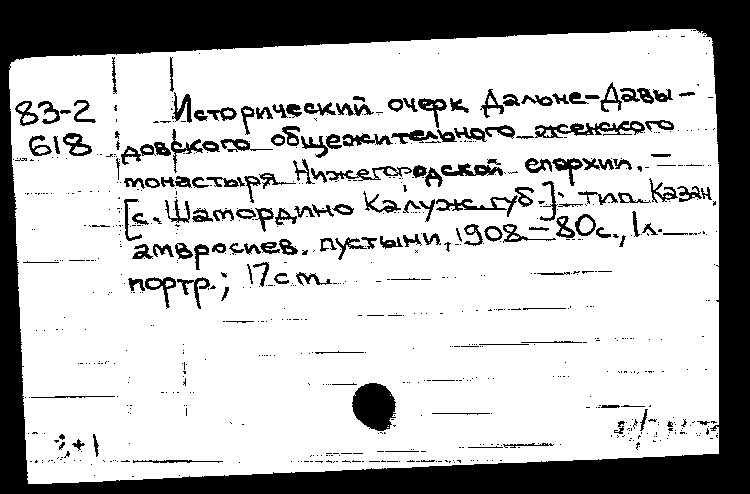 83-2
618
Исторический очерк Дальне-Давы-
довского общежительного женского
монастыря Нижегородской епархии. —
[с. Шамордино Калуж. губ.]: тип. Казан.
амвросиев. пустыни, 1908. — 80с., 1л.
портр.; 17см.